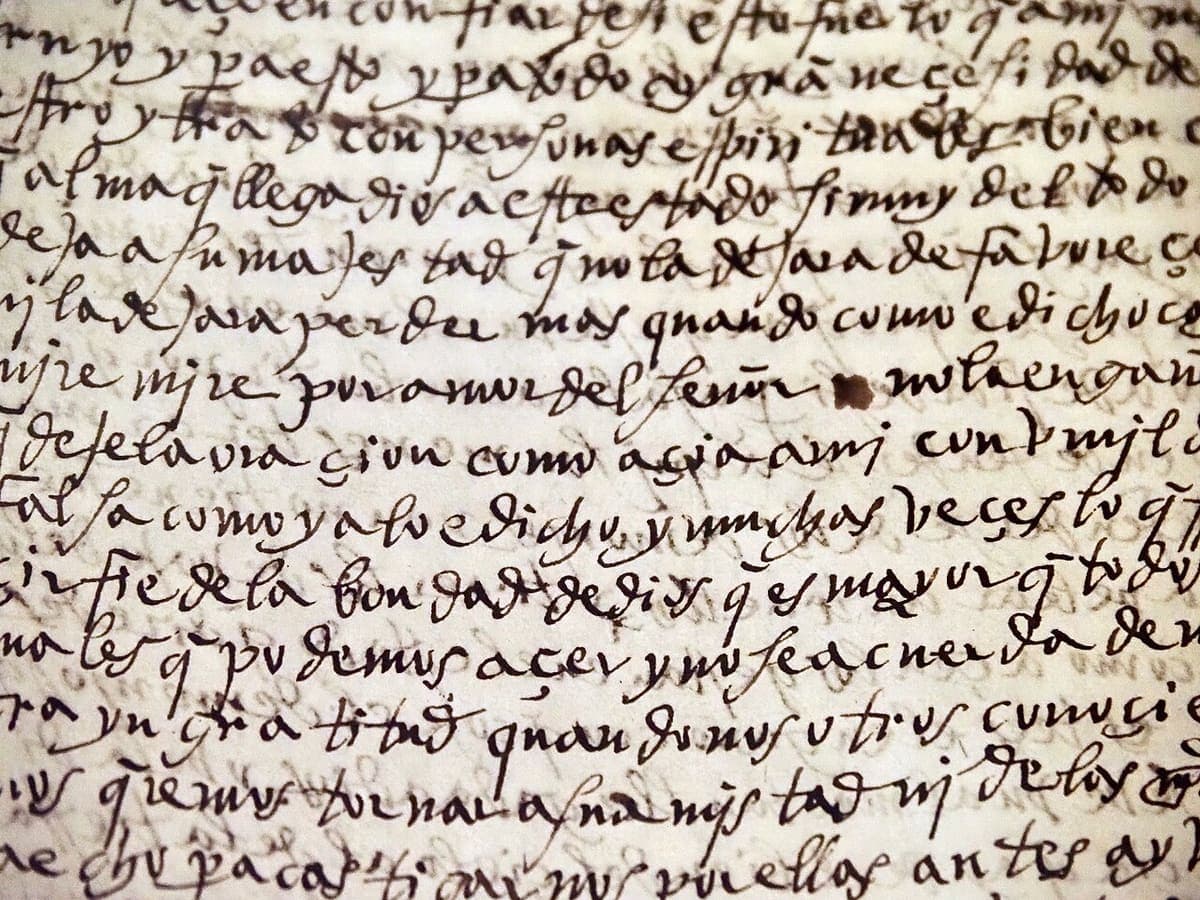 en confiar de si esto fue lo q̄ a mi
yo y pa esto y pa todo ay grā neçesidad de
estro y trato con personas espirituales bien
alma q̄ llega dios a este estado si muy del todo
deja a su majestad q̄ no la dejara de favoreçe
nj la dejara perder mas quando como e dicho
mjre mjre por amor del señor no la engañ
deje la oraçion como açia a mi con vmjld
falsa como ya lo e dicho y muchas veçes lo q̄
fie de la bondad de dios q̄ es mayor q̄ todos
males q̄ podemos açer y no se acuerda de n
ra yngratitud quando nosotros conoçie
nos q̄remos tornar a su amjstad nj de las
echo pa castigarnos por ellas antes ay